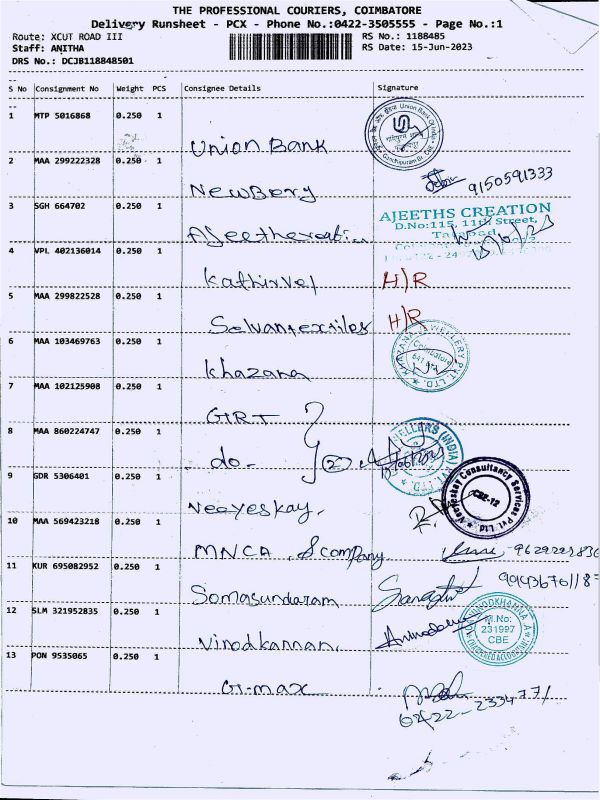 THE PROFESSIONAL COURIERS, COIMBATORE
Delivery Runsheet - PCX - Phone No.:0422-3505555 - Page No.:1
Route: XCUT ROAD III RS No.: 1188485
Staff: ANITHA RS Date: 15-Jun-2023
DRS No.: DCJB118848501
S No Consignment No Weight PCS Consignee Details Signature
1 MTP 5016868 0.250 1
Union Bank
2 MAA 299222328 0.250 1
NewBory 9150591333
3 SGH 664702 0.250 1
AJEETHS CREATION
D.No:115, 11th Street,
Ajeethcreation 15/6/23
4 VPL 402136014 0.250 1
Kathirvel H/R
5 MAA 299822528 0.250 1
Selvantextiles H/R
6 MAA 103469763 0.250 1
Coimbatore
641
Khazana
7 MAA 102125908 0.250 1
GRT
8 MAA 860224747 0.250 1
-do- 2
9 GDR 5306401 0.250 1
Neeyeskay Consultancy Services Pvt. Ltd
CBE-12
Neeyeskay.
10 MAA 569423218 0.250 1
MNCA & company
11 KUR 695082952 0.250 1
Somasundaram
12 SLM 321952835 0.250 1
VINODKHANNA A
M.No:
231997
CBE
Vinodkannan.
13 PON 9535065 0.250 1
G-max
0422-2334771